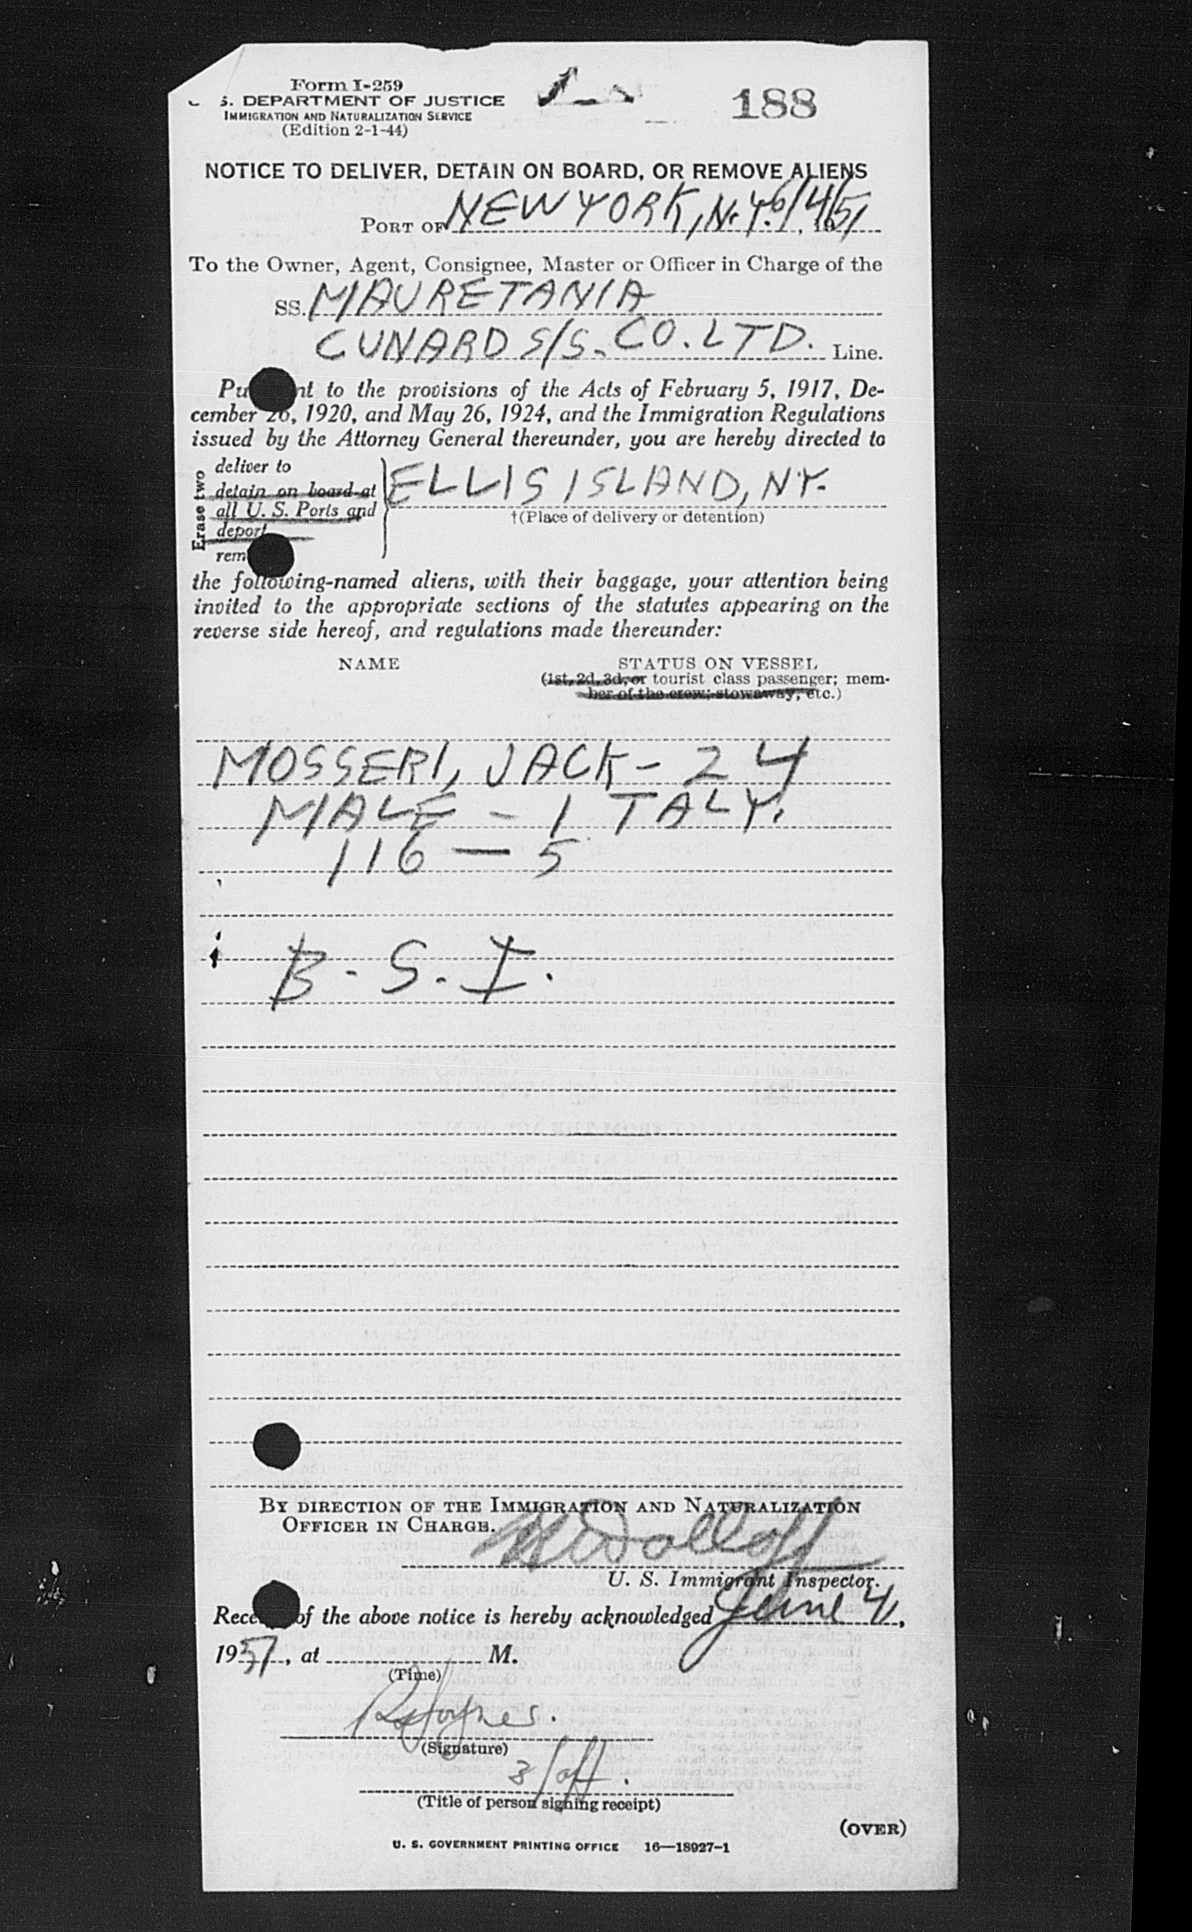 Form I-259
S. DEPARTMENT OF JUSTICE
188
IMMIGRATION AND NATURALIZATION SERVICE
(Edition 2-1-44)
NOTICE TO DELIVER, DETAIN ON BOARD, OR REMOVE ALIENS
PORT OF NEW YORK, N.Y. 6/4/51, 19
To the Owner, Agent, Consignee, Master or Officer in Charge of the
SS. MAURETANIA
CUNARD S/S. CO. LTD. Line.
Pu nt to the provisions of the Acts of February 5, 1917, De-
cember 26, 1920, and May 26, 1924, and the Immigration Regulations
issued by the Attorney General thereunder, you are hereby directed to
Erase two
deliver to
detain on board at
all U. S. Ports and
deport
rem
ELLIS ISLAND, NY.
†(Place of delivery or detention)
the following-named aliens, with their baggage, your attention being
invited to the appropriate sections of the statutes appearing on the
reverse side hereof, and regulations made thereunder:
NAME STATUS ON VESSEL
(1st, 2d, 3d, or tourist class passenger; mem-
ber of the crew; stowaway, etc.)
MOSSERI, JACK - 24
MALE - ITALY.
116 - 5
B. S. I.
BY DIRECTION OF THE IMMIGRATION AND NATURALIZATION
OFFICER IN CHARGE.
U. S. Immigrant Inspector.
Rece of the above notice is hereby acknowledged June 4,
1951, at M.
(Time)
(Signature)
3/off.
(Title of person signing receipt)
(OVER)
U. S. GOVERNMENT PRINTING OFFICE 16—18927-1